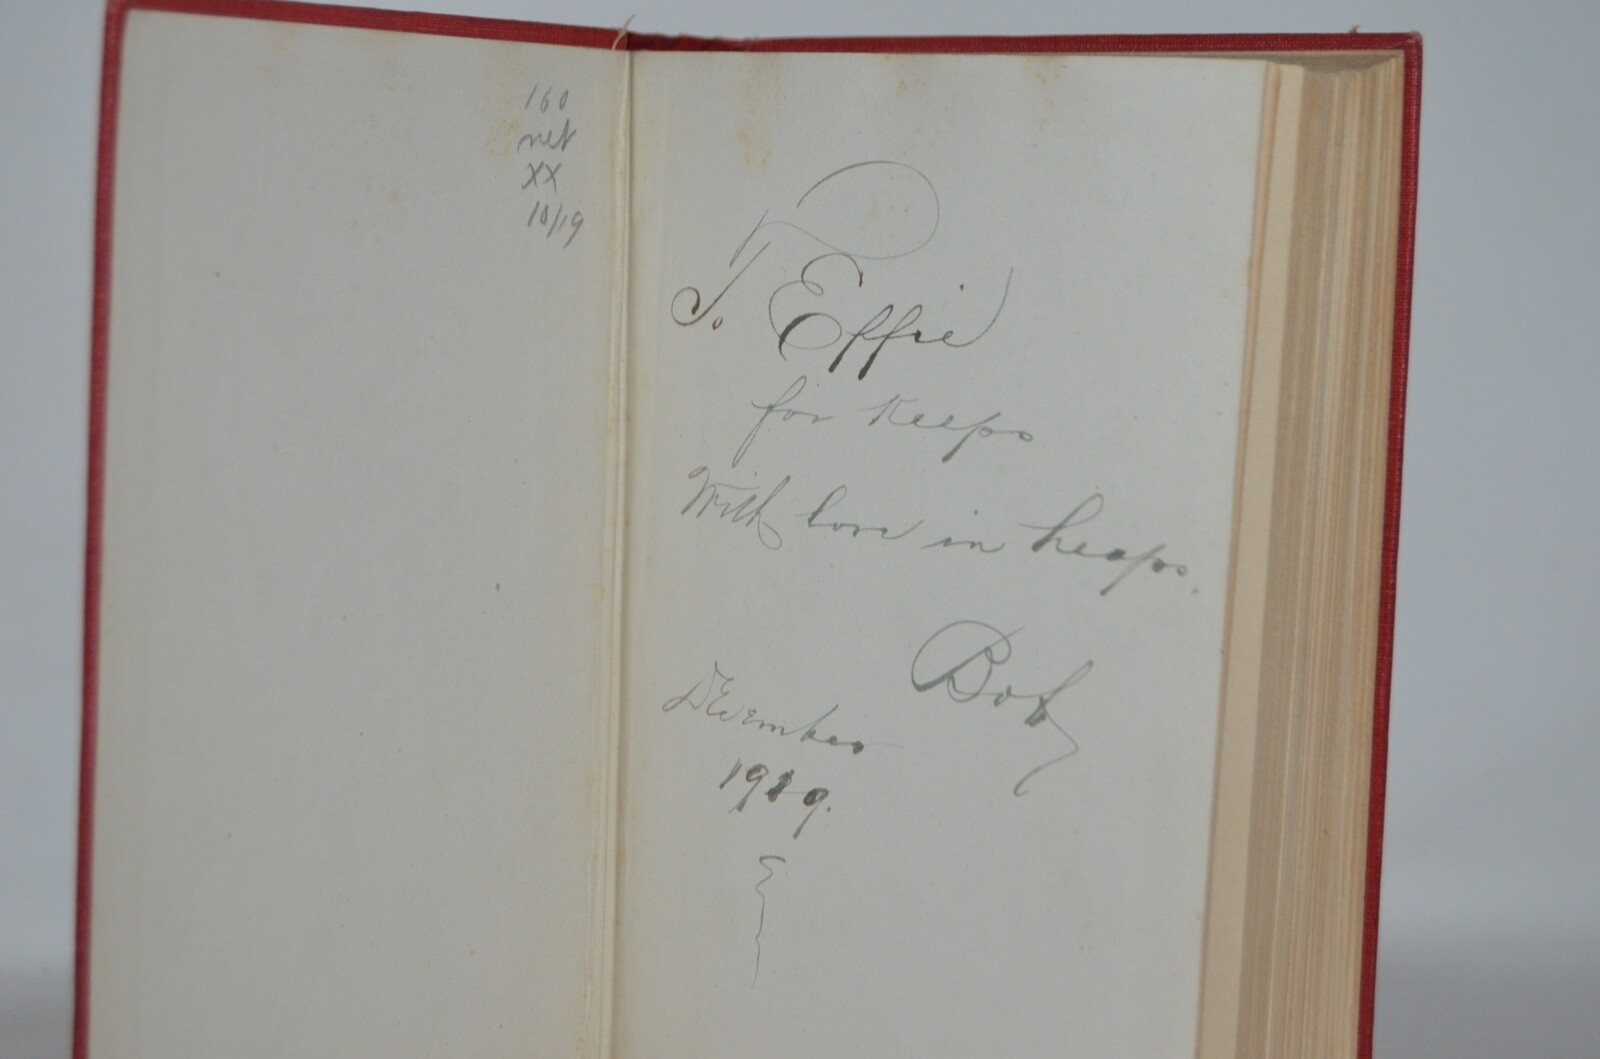 160
net
XX
10/19
To Effie
for Keeps
With love in heaps.
Bob
December
1919.